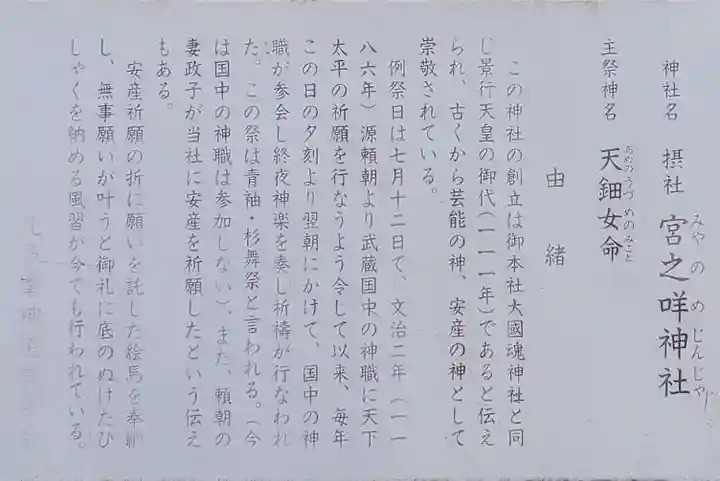 神社名　摂社　宮之咩神社
みやのめじんじゃ
主祭神名　天鈿女命
あめのうづめのみこと
由緒
この神社の創立は御本社大國魂神社と同
じ景行天皇の御代(一一一年)であると伝え
られ、古くから芸能の神、安産の神として
崇敬されている。
例祭日は七月十二日で、文治二年（一一
八六年）源頼朝より武蔵国中の神職に天下
太平の祈願を行なうよう令して以来、毎年
この日の夕刻より翌朝にかけて、国中の神
職が参会し終夜神楽を奏し祈禱が行なわれ
た。この祭は青袖・杉舞祭と言われる。(今
は国中の神職は参加しない)、また、頼朝の
妻政子が当社に安産を祈願したという伝え
もある。
安産祈願の折に願いを託した絵馬を奉納
し、無事願いが叶うと御礼に底のぬけたひ
しゃくを納める風習が今でも行われている。